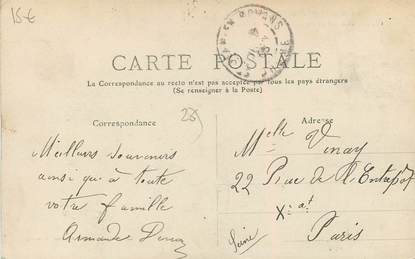 15€
CARTE POSTALE
La Correspondance au recto n'est pas acceptée par tous les pays étrangers
(Se renseigner à la Poste)
Correspondance
Adresse
Meilleurs souvenirs
ainsi qu'à toute
votre famille
Armande
Melle Vinay
22 Rue de l'Entrepôt
Xe at
Paris
Seine